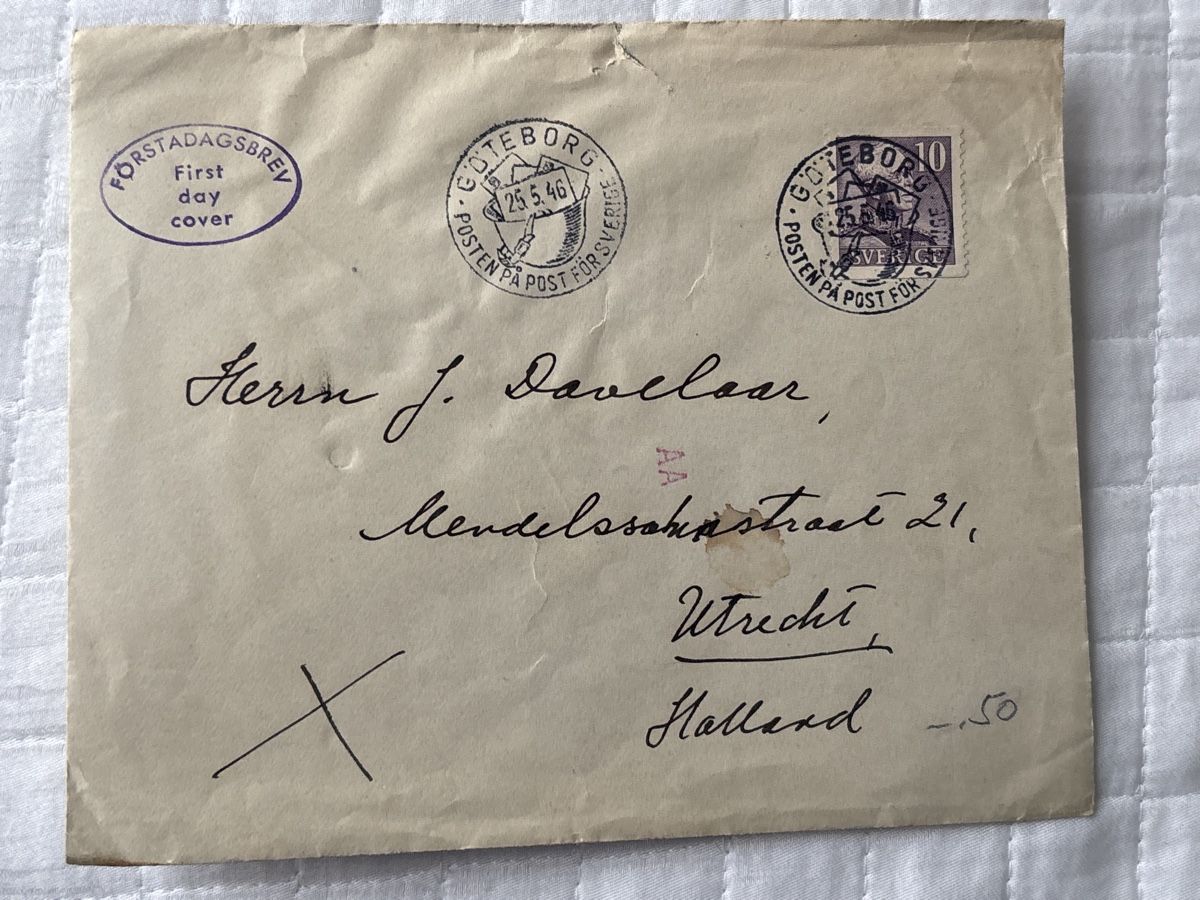 FÖRSTADAGSBREV
First
day
cover
GÖTEBORG
25.5.46
POSTEN PÅ POST FÖR SVERIGE
10
SVERIGE
GÖTEBORG
25.5.46
POSTEN PÅ POST FÖR SVERIGE
Herrn J. Davelaar,
AA
Mendelssohnstraat 21,
Utrecht,
Holland
-.50